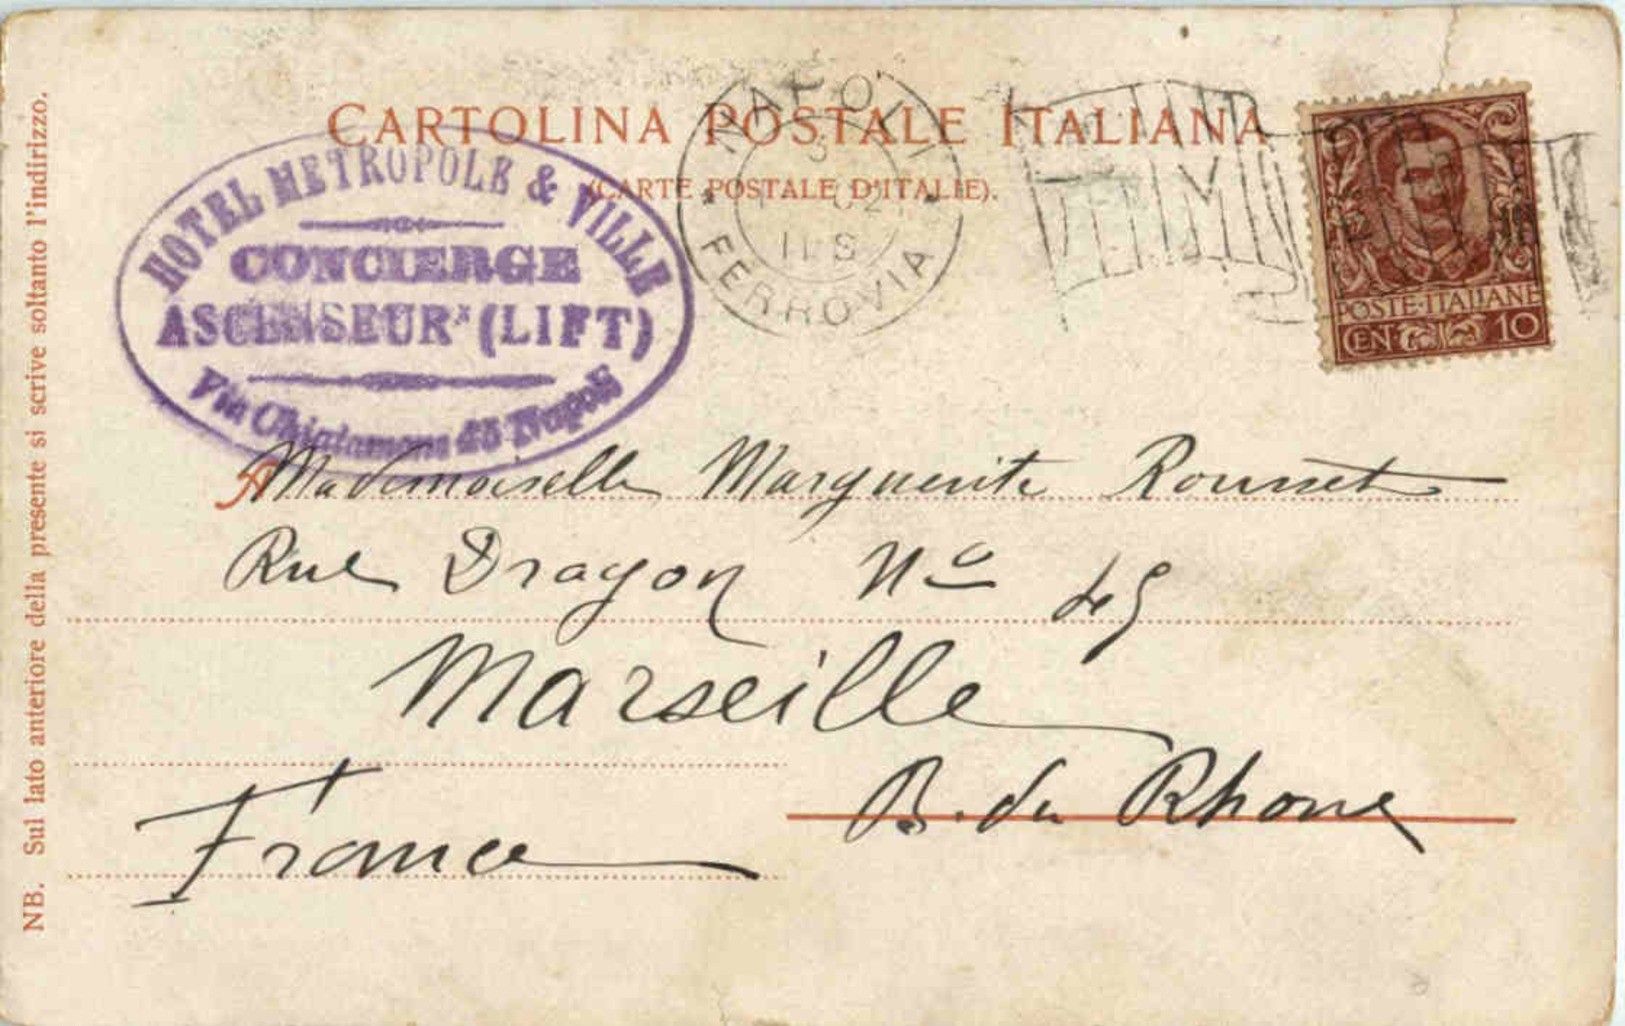 CARTOLINA POSTALE ITALIANA
(CARTE POSTALE D'ITALIE).
HOTEL METROPOLE & VILLE
CONCIERGE
ASCENSEUR (LIFT)
Via Chiatamone 45 Napoli
NAPOLI
11 S
FERROVIA
POSTE·ITALIANE
CEN· 10
A Mademoiselle Marguerite Rousset
Rue Dragon No 49
Marseille
B. du Rhone
France
NB. Sul lato anteriore della presente si scrive soltanto l'indirizzo.